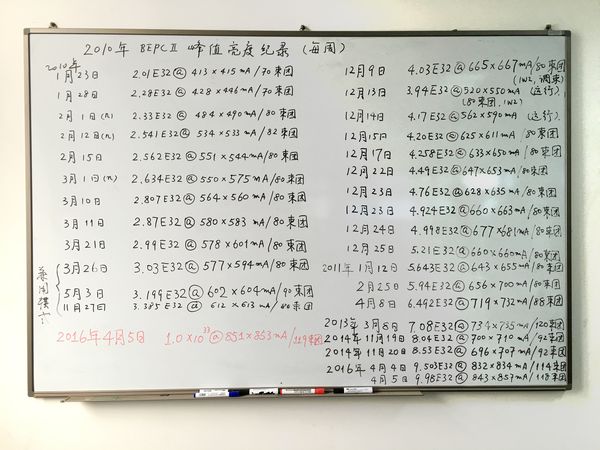 2010年 BEPCII 峰值亮度纪录 (每周)
2010年
1月23日 2.01E32 @ 413×415mA/70束团
1月28日 2.28E32 @ 428×446mA/70束团
2月1日(凡) 2.33E32 @ 484×490mA/80束团
2月12日(凡) 2.541E32 @ 534×533mA/82束团
2月15日 2.562E32 @ 551×544mA/80束团
3月1日(凡) 2.634E32 @ 550×575mA/80束团
3月10日 2.807E32 @ 564×560mA/80束团
3月11日 2.87E32 @ 580×583mA/80束团
3月21日 2.99E32 @ 578×601mA/80束团
兼用模式
3月26日 3.03E32 @ 577×594mA/80束团
5月3日 3.199E32 @ 602×604mA/90束团
11月27日 3.385E32 @ 612×613mA/80束团
2016年4月5日 1.0×10³³ @ 851×853mA/119束团
12月9日 4.03E32 @ 665×667mA/80束团
(1W2, 调束)
12月13日 3.94E32 @ 520×550mA (运行)
(80束团, 1W2)
12月14日 4.17E32 @ 562×590mA (运行)
12月15日 4.20E32 @ 625×611mA/80束团
12月17日 4.258E32 @ 633×650mA/80束团
12月22日 4.49E32 @ 647×653mA/80束团
12月23日 4.76E32 @ 628×635mA/80束团
12月23日 4.924E32 @ 660×663mA/80束团
12月24日 4.998E32 @ 677×681mA/80束团
12月25日 5.21E32 @ 660×660mA/80束团
2011年1月12日 5.643E32 @ 643×655mA/80束团
2月25日 5.94E32 @ 656×700mA/80束团
4月8日 6.492E32 @ 719×732mA/88束团
2013年3月8日 7.08E32 @ 734×735mA/120束团
2014年11月19日 8.04E32 @ 700×710mA/92束团
2014年11月20日 8.53E32 @ 696×707mA/92束团
2016年4月4日 9.503E32 @ 832×834mA/114束团
4月5日 9.98E32 @ 843×857mA/118束团